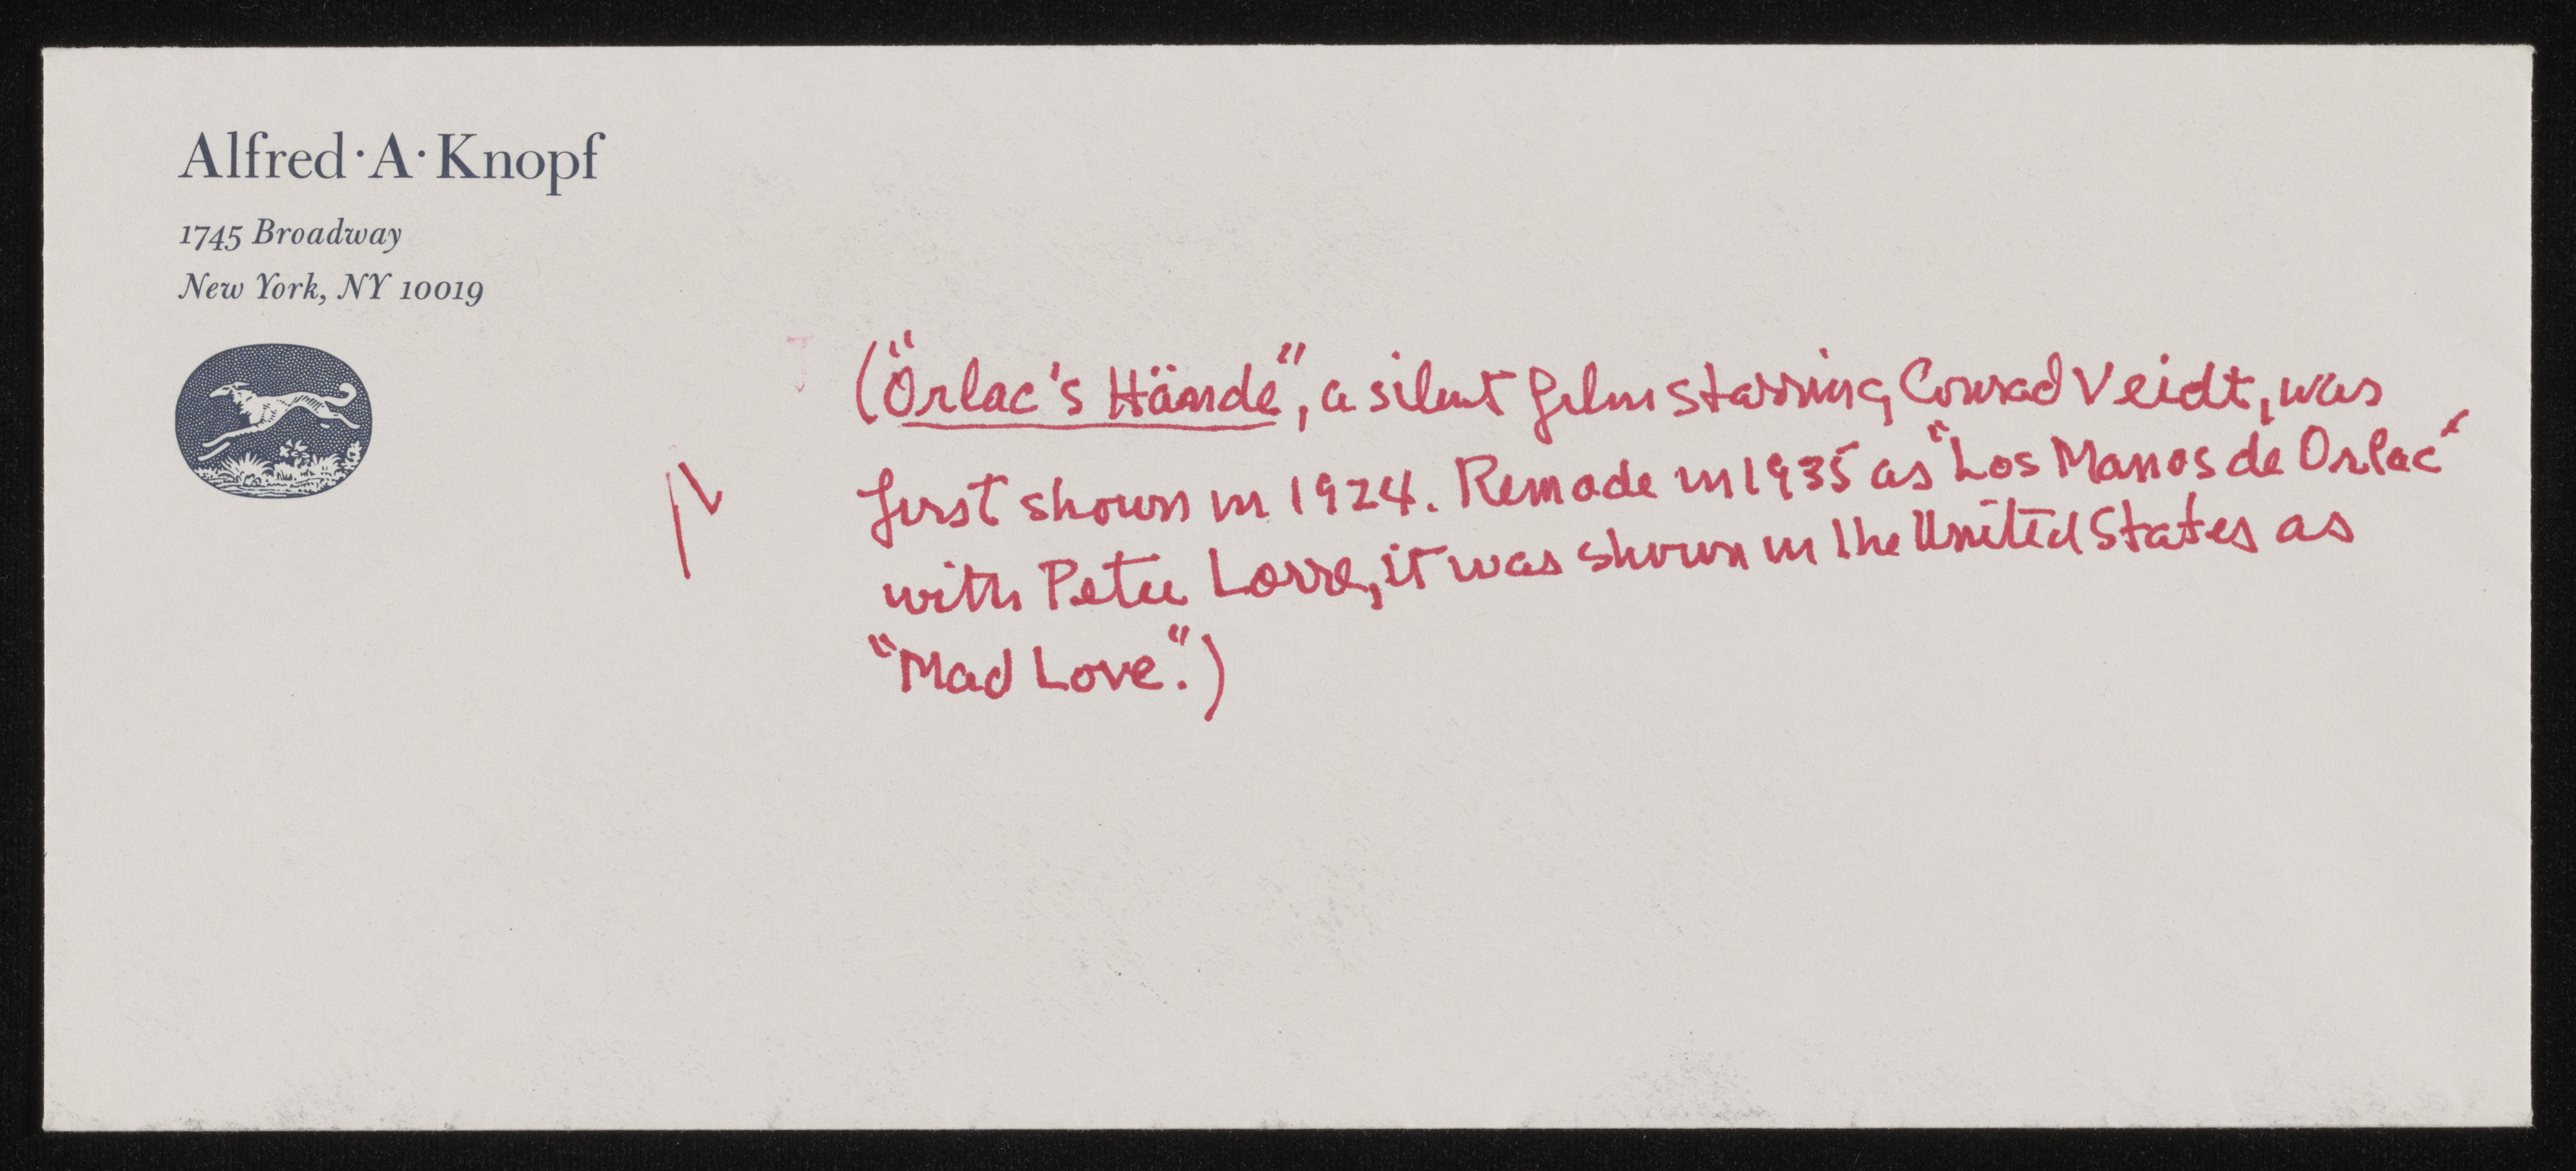 Alfred·A·Knopf
1745 Broadway
New York, NY 10019
("Orlac's Hände", a silent film starring Conrad Veidt, was
first shown in 1924. Remade in 1935 as "Los Manos de Orlac"
with Peter Lorre, it was shown in the United States as
"Mad Love.")